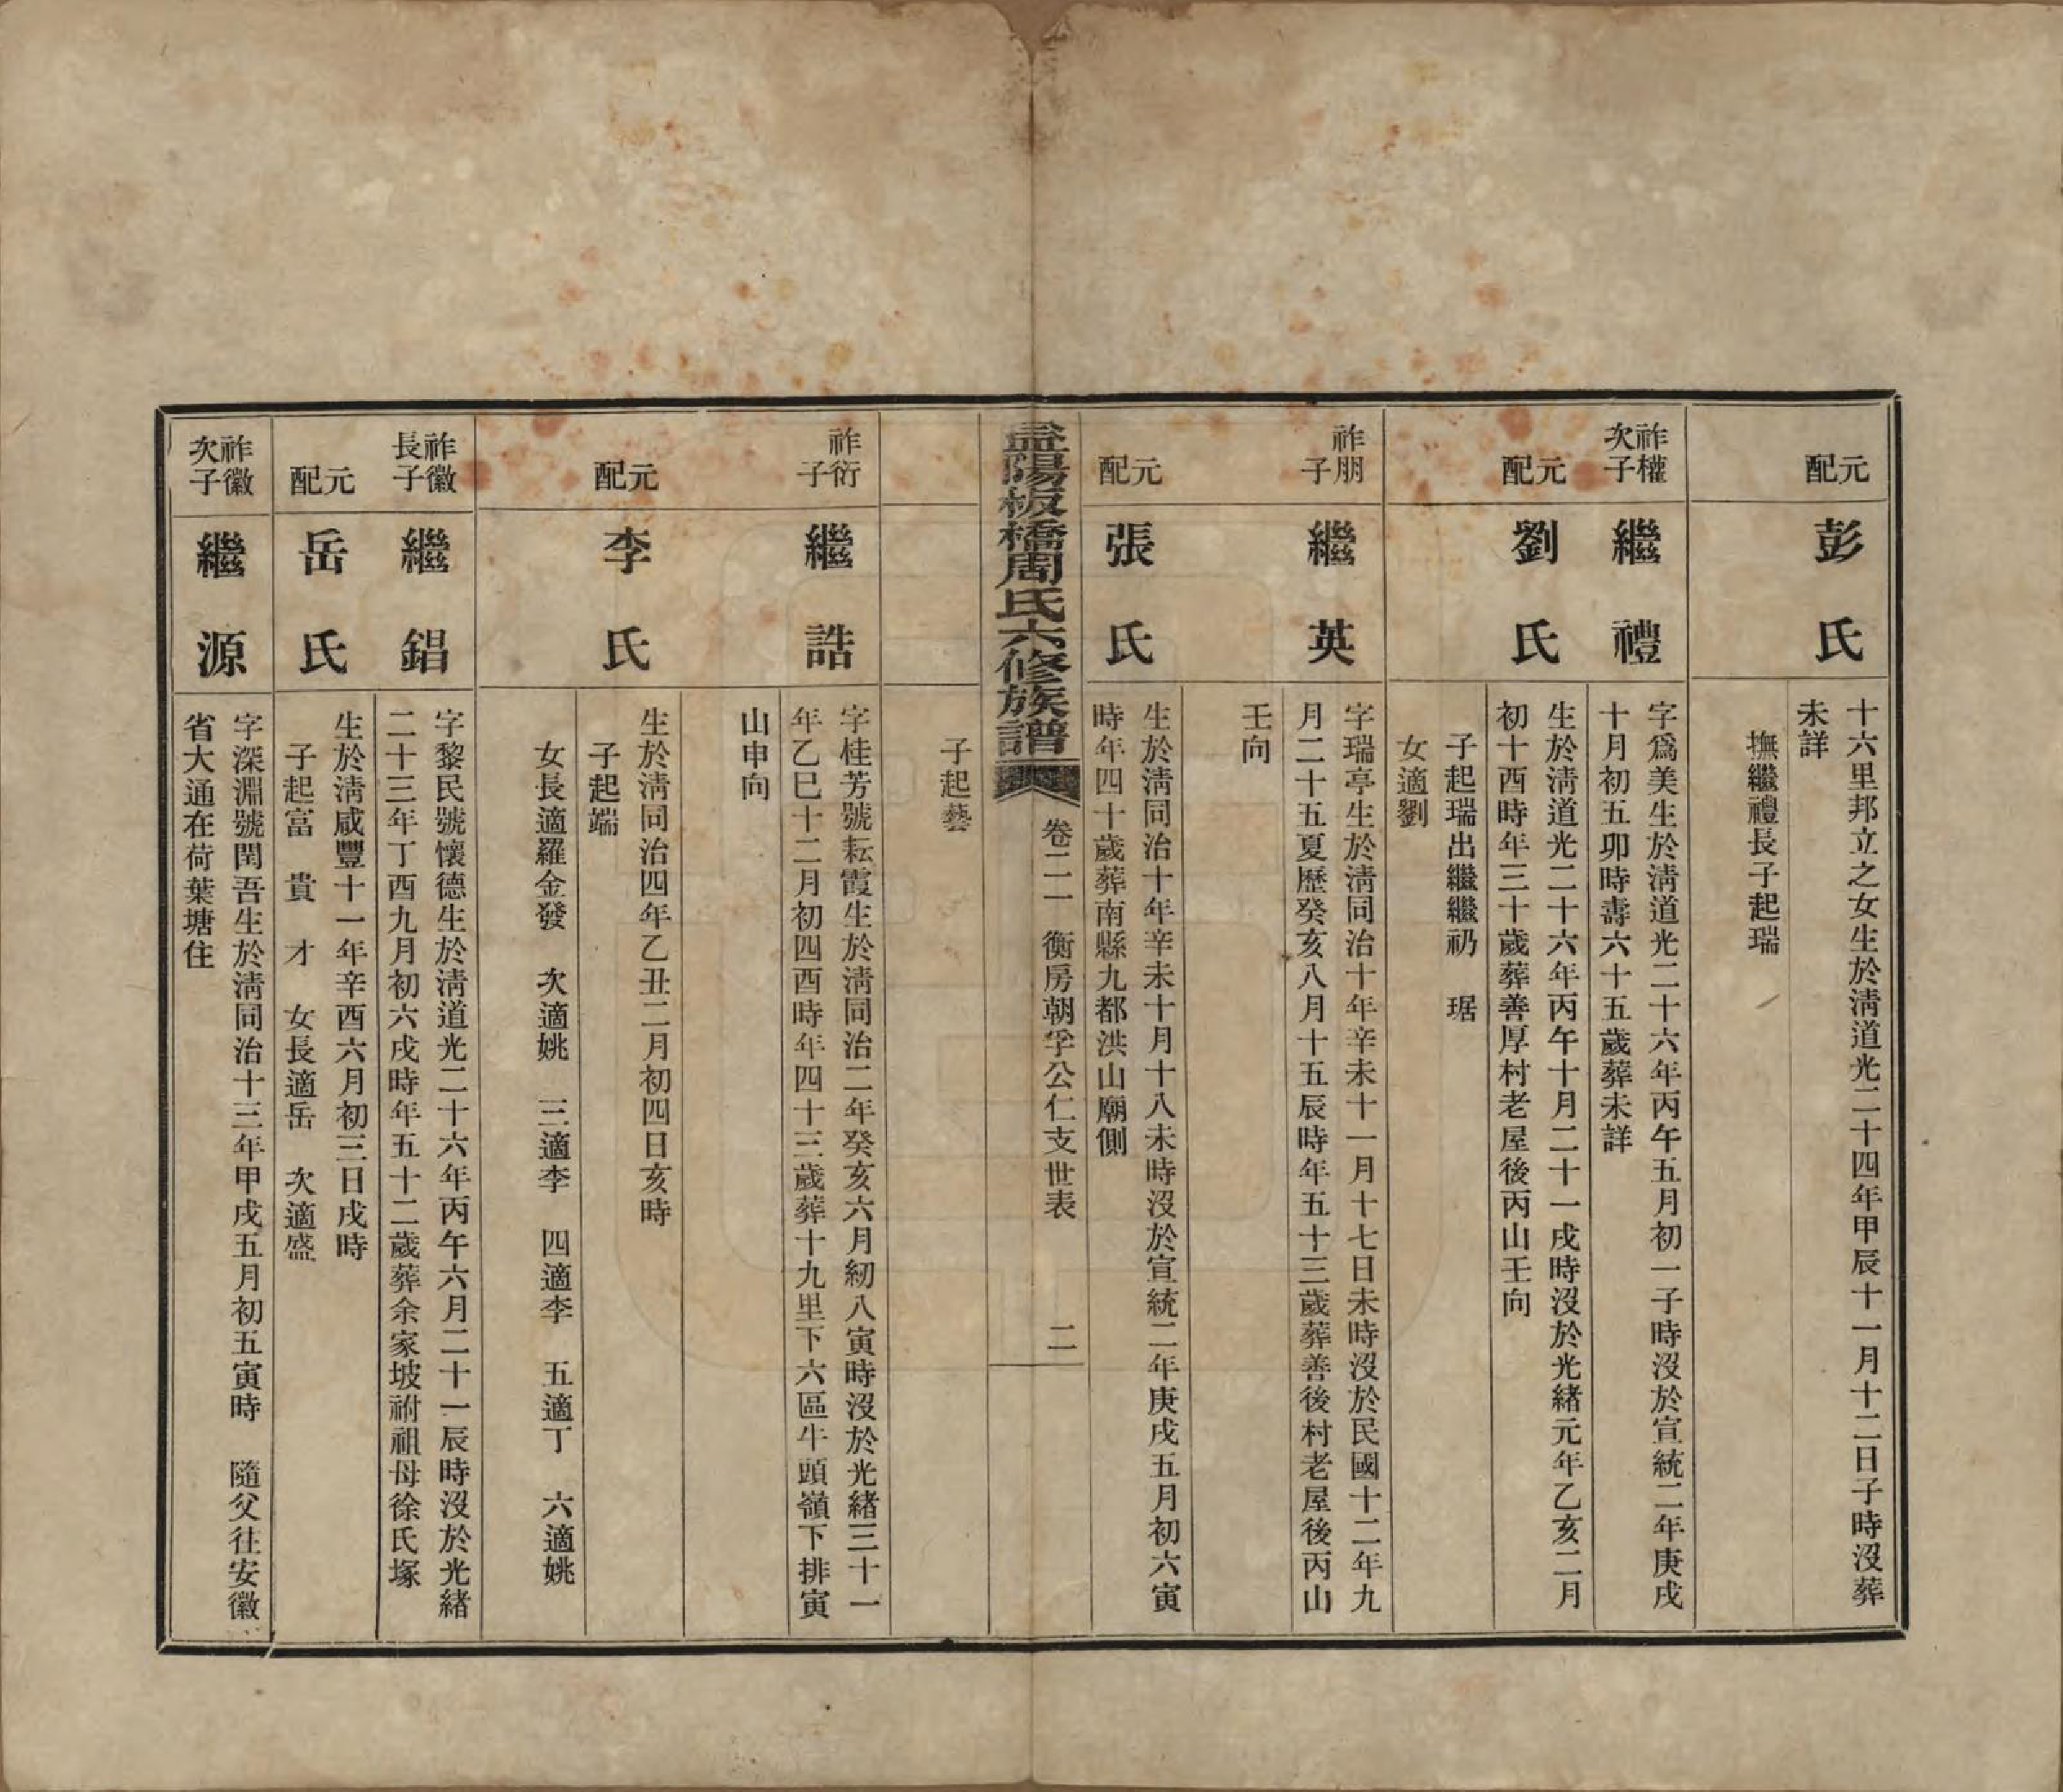 元配
彭氏
十六里邦立之女生於淸道光二十四年甲辰十一月十二日子時沒葬
未詳
撫繼禮長子起瑞
祚權
次子
繼禮
字爲美生於淸道光二十六年丙午五月初一子時沒於宣統二年庚戌
十月初五卯時壽六十五歲葬未詳
元配
劉氏
生於淸道光二十六年丙午十月二十一戌時沒於光緒元年乙亥二月
初十酉時年三十歲葬善厚村老屋後丙山壬向
子起瑞出繼繼礽　琚
女適劉
祚朋
子
繼英
字瑞亭生於淸同治十年辛未十一月十七日未時沒於民國十二年九
月二十五夏歷癸亥八月十五辰時年五十三歲葬善後村老屋後丙山
壬向
元配
張氏
生於淸同治十年辛未十月十八未時沒於宣統二年庚戌五月初六寅
時年四十歲葬南縣九都洪山廟側
益陽板橋周氏六修族譜
卷二一　衡房朝孚公仁支世表
二
子起藝
祚衍
子
繼誥
字桂芳號耘霞生於淸同治二年癸亥六月初八寅時沒於光緒三十一
年乙巳十二月初四酉時年四十三歲葬十九里下六區牛頭嶺下排寅
山申向
元配
李氏
生於淸同治四年乙丑二月初四日亥時
子起端
女長適羅金發　次適姚　三適李　四適李　五適丁　六適姚
祚徽
長子
繼錩
字黎民號懷德生於淸道光二十六年丙午六月二十一辰時沒於光緒
二十三年丁酉九月初六戌時年五十二歲葬余家坡祔祖母徐氏塚
元配
岳氏
生於淸咸豐十一年辛酉六月初三日戌時
子起富　貴　才　女長適岳　次適盛
祚徽
次子
繼源
字深淵號閏吾生於淸同治十三年甲戌五月初五寅時　隨父往安徽
省大通在荷葉塘住